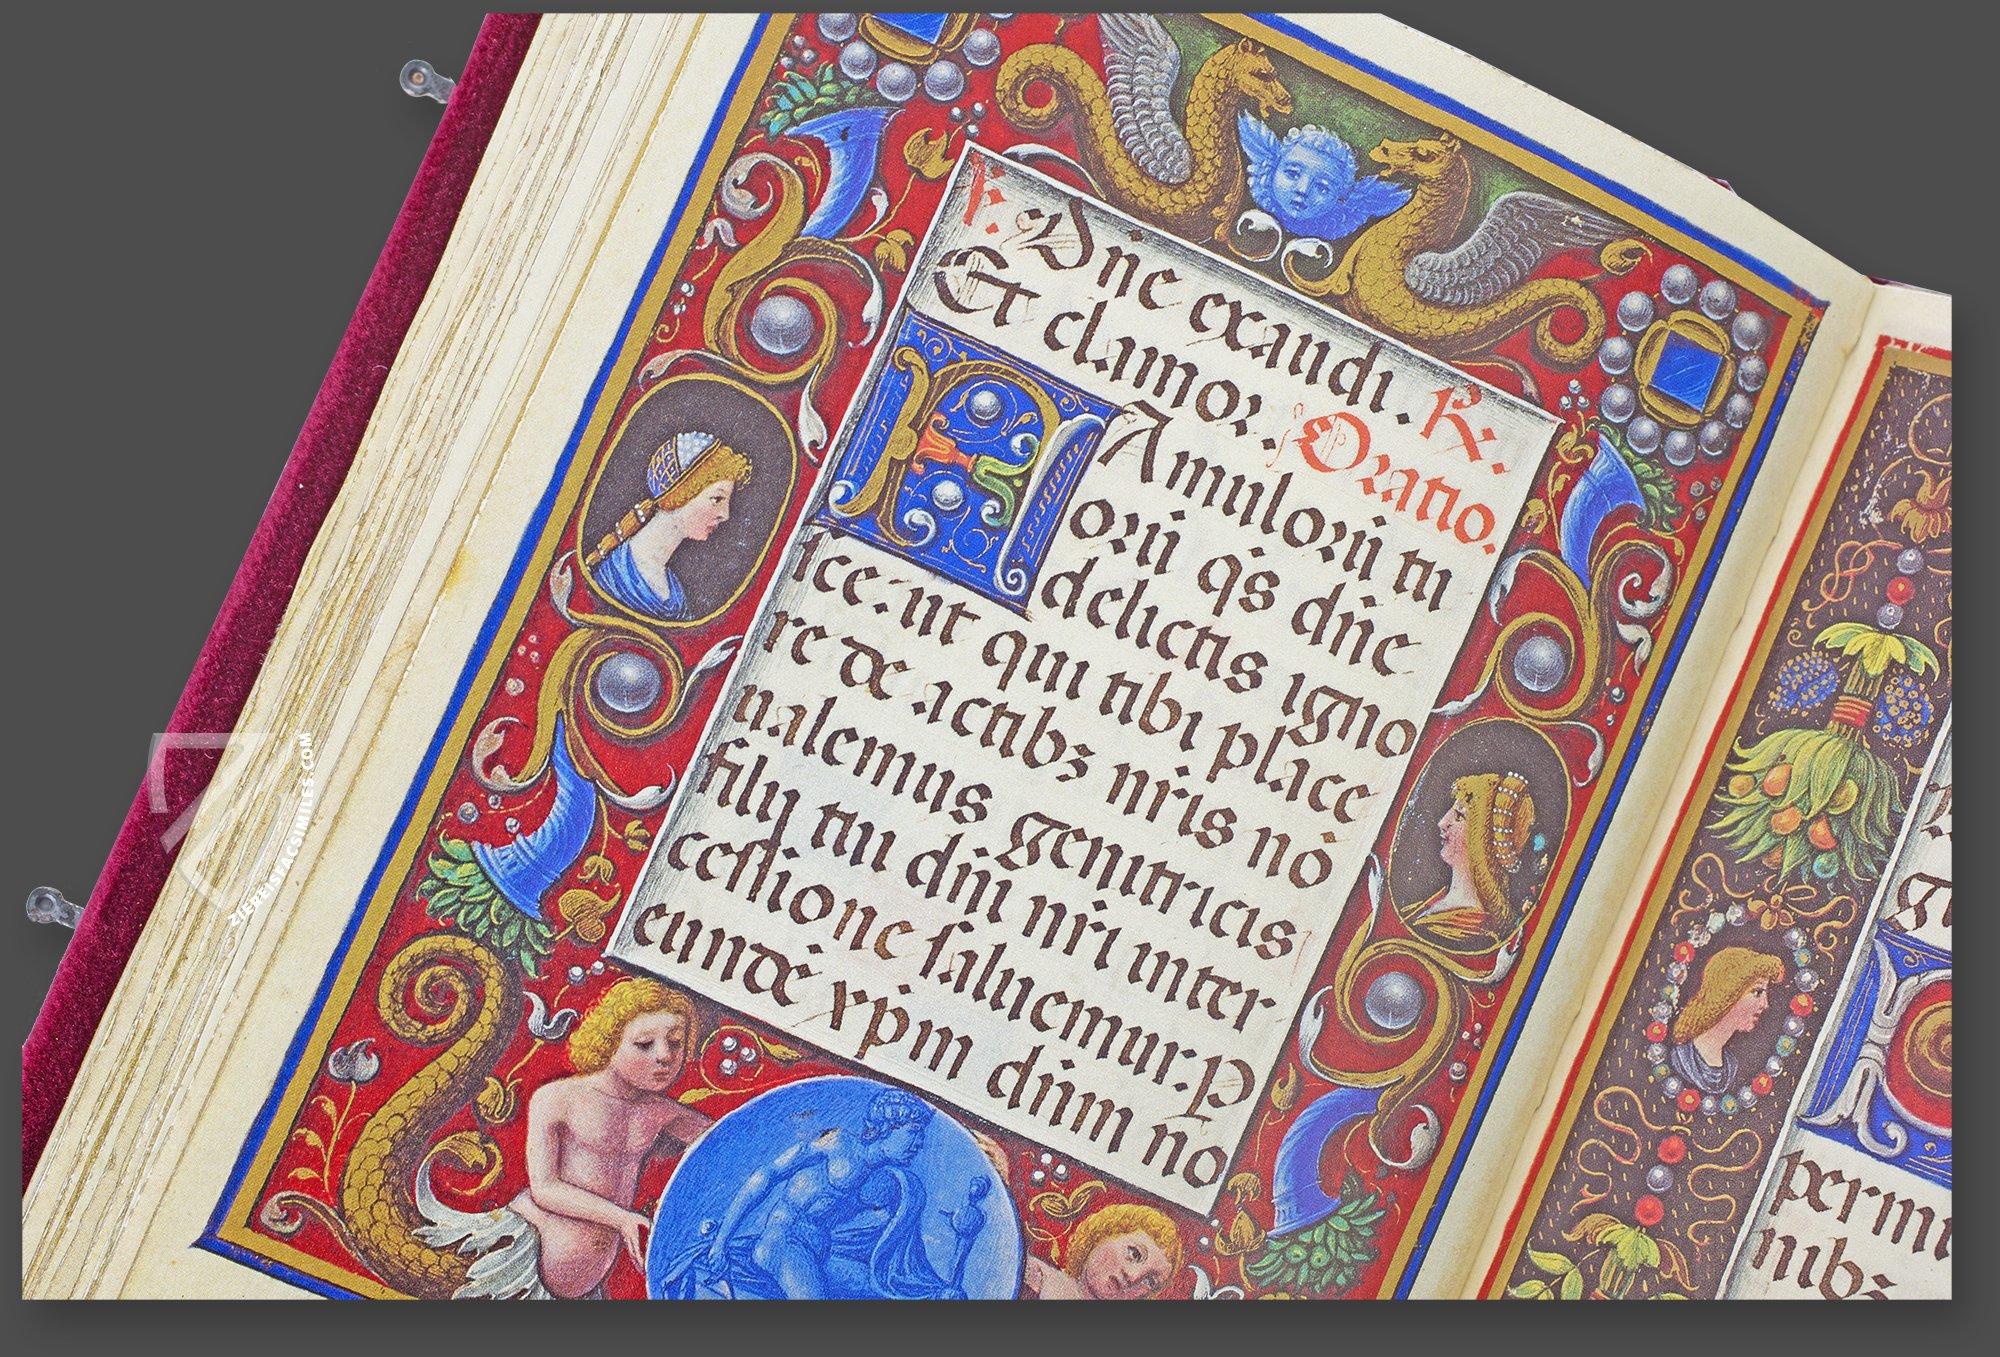 V. Dñe exaudi. R.
Et clamor. Oratio.
FAmulorũ tu
orũ q̃s dñe
delictis igno
sce: ut qui tibi place
re de actibꝫ nr̃is nõ
ualemus genitricis
filij tui dñi nr̃i inter
cessione saluemur. P
eundẽ xp̃m dñm no
permi
nibꝫ
ZIEREIS FACSIMILES.COM